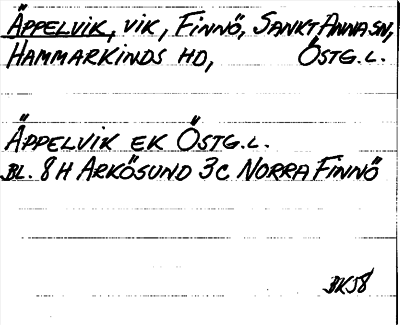 Äppelvik, vik, Finnö, Sankt Anna sn,
Hammarkinds hd, Östg.l.
Äppelvik ek Östg.l.
Bl. 8H Arkösund 3c Norra Finnö
BK58